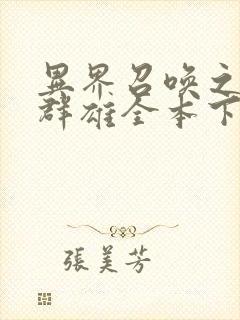 異界召喚之
群雄全本下
張美芳